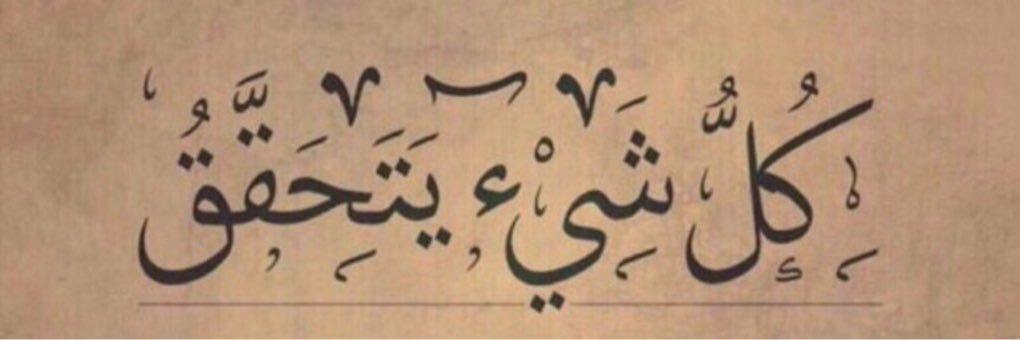 كُلُّ شَيْء يَتَحَقَّقُ